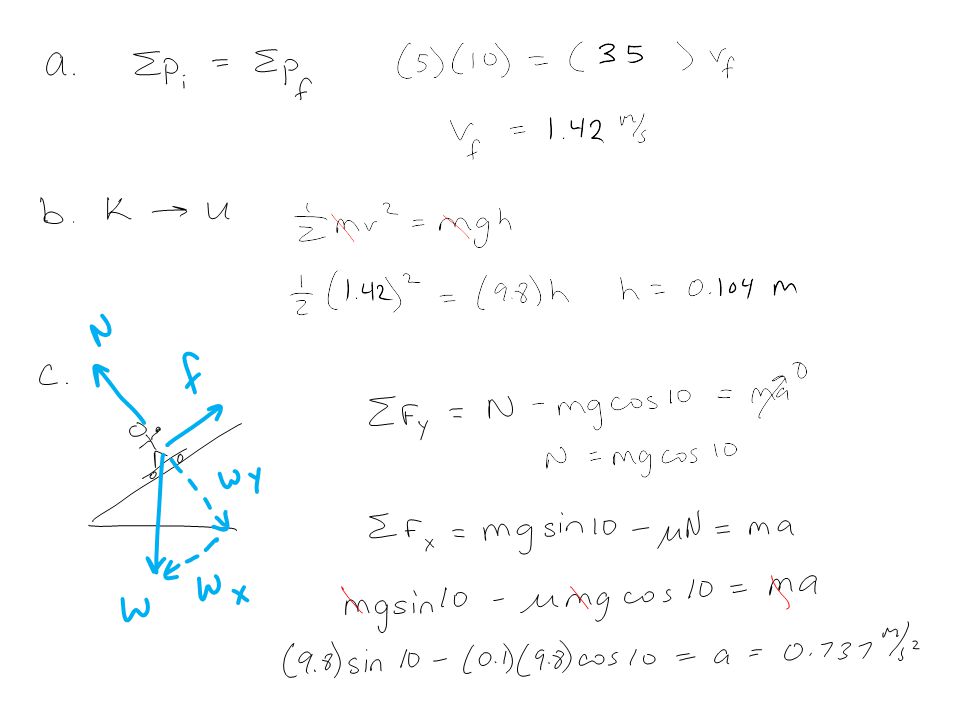 a. Σp_i = Σp_f (5)(10) = (35) v_f
v_f = 1.42 m/s
b. K → U ½mv² = mgh
½(1.42)² = (9.8)h h = 0.104 m
c.
N
f
W_y
W_x
W
ΣF_y = N - mg cos 10 = ma 0
N = mg cos 10
ΣF_x = mg sin 10 - μN = ma
mg sin 10 - μmg cos 10 = ma
(9.8) sin 10 - (0.1)(9.8) cos 10 = a = 0.737 m/s²